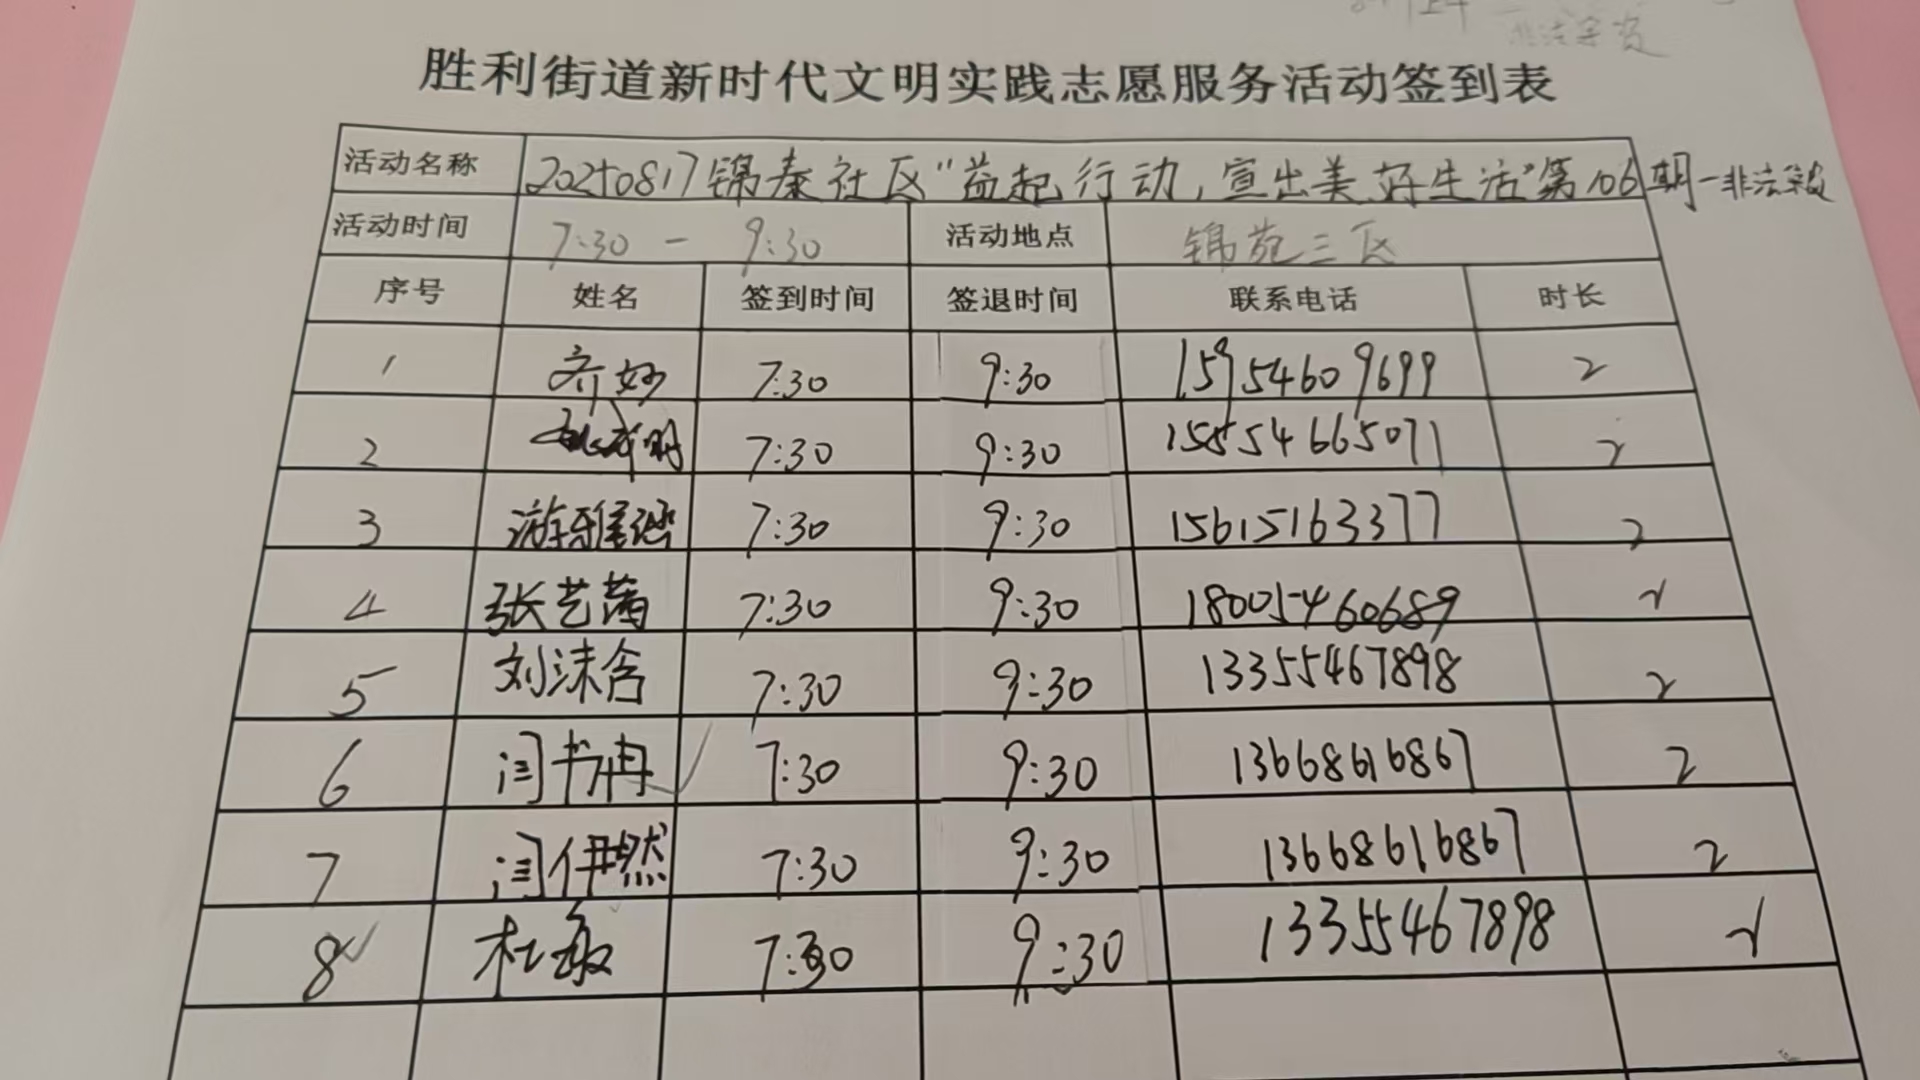 非法集资
胜利街道新时代文明实践志愿服务活动签到表
活动名称 20250817锦泰社区“益起行动,宣出美好生活”第106期-非法集资
活动时间 7:30 - 9:30 活动地点 锦苑三区
序号 姓名 签到时间 签退时间 联系电话 时长
1 齐妙 7:30 9:30 15954609699 2
2 7:30 9:30 15554665071 2
3 游雅涵 7:30 9:30 15615163377 2
4 张艺菡 7:30 9:30 18005460689 2
5 刘沫含 7:30 9:30 13355467898 2
6 闫书冉 7:30 9:30 13668616867 2
7 闫伊然 7:30 9:30 13668616867 2
8 杜敏 7:30 9:30 13355467898 2